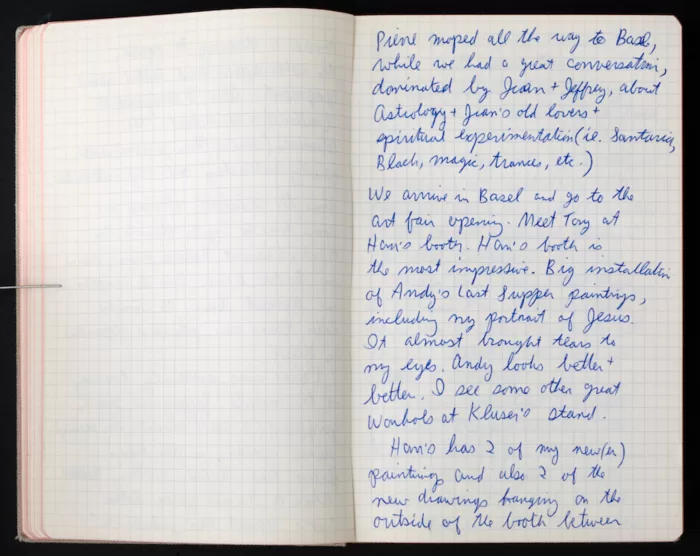 Pierre moped all the way to Basel,
while we had a great conversation,
dominated by Juan + Jeffrey, about
Astrology + Juan's old lovers +
spiritual experimentation (ie. Santaria,
Black, magic, trances, etc.)
We arrive in Basel and go to the
art fair opening. Meet Tony at
Hans's booth. Hans's booth is
the most impressive. Big installation
of Andy's Last Supper paintings,
including my portrait of Jesus.
It almost brought tears to
my eyes. Andy looks better +
better. I see some other great
Warhols at Kluser's stand.
Hans has 2 of my new(er)
paintings and also 2 of the
new drawings hanging on the
outside of the booth between